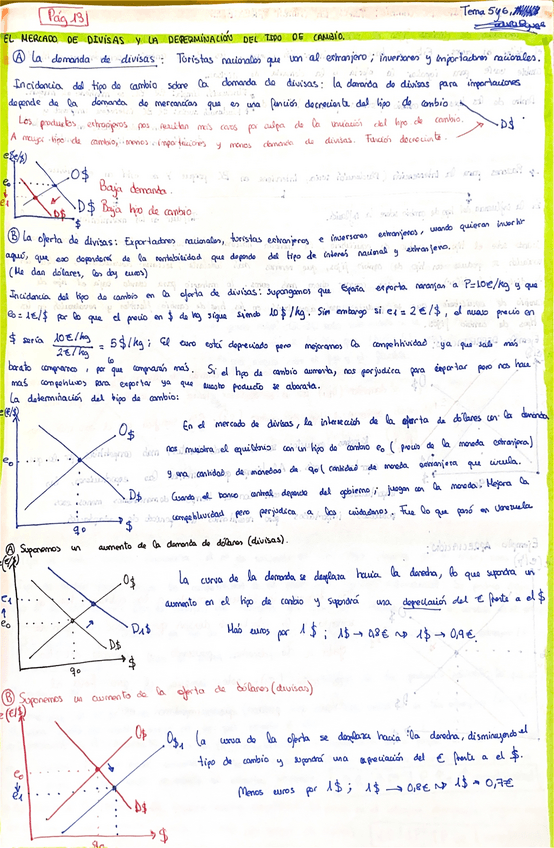 Pág 13
Tema 5y6,
EL MERCADO DE DIVISAS Y LA DETERMINACIÓN DEL TIPO DE CAMBIO.
Ⓐ La demanda de divisas: Toristas nacionales que van al extranjero; inversores y importadores nacionales.
Incidencia del tipo de cambio sobre la demanda de divisas: la demanda de divisas para importaciones
depende de la demanda de mercancías que es una función decreciente del tipo de cambio
D$
Los productos extranjeros nos resultan mas caros por culpa de la variación del tipo de cambio.
A mayor tipo de cambio, menos importaciones y menos demanda de divisas. Función decreciente.
e(€/$)
O$
e₀
e₁
D$
D$
$
Baja demanda.
Baja tipo de cambio
Ⓑ La oferta de divisas: Exportadores nacionales, toristas extranjeros e inversores extranjeros, cuando quieran invertir
aquí, que eso dependerá de la rentabilidad que depende del tipo de interés nacional y extranjero.
(Me dan dólares, les doy euros)
Incidencia del tipo de cambio en la oferta de divisas: supongamos que España exporta naranjas a P=10€/kg y que
e₀=1€/$ por lo que el precio en $ de kg sigue siendo 10$/kg. Sin embargo si e₁=2€/$, el nuevo precio en
$ sería 10€/kg / 2€/kg = 5$/kg; El euro está depreciado pero mejoramos la competitividad ya que sale más
barato comprarnos, por lo que comprarán más. Si el tipo de cambio aumenta, nos perjudica para importar pero nos hace
más competitivos para exportar ya que nuestro producto se abarata.
La determinación del tipo de cambio:
e(€/$)
O$
e₀
D$
q₀
$
En el mercado de divisas, la intersección de la oferta de dólares con la demanda
nos muestra el equilibrio con un tipo de cambio e₀ (precio de la moneda extranjera)
y una cantidad de monedas de q₀ (cantidad de moneda extranjera que circula.
Cuando el banco central depende del gobierno, juegan con la moneda. Mejora la
competitividad pero perjudica a los ciudadanos. Fue lo que pasó en Venezuela
Ⓐ Suponemos un aumento de la demanda de dólares (divisas).
e(€/$)
O$
e₁
e₀
D₁$
D$
q₀
$
La curva de la demanda se desplaza hacia la derecha, lo que supondrá un
aumento en el tipo de cambio y supondrá una depreciación del € frente a el $
Más euros por 1$; 1$ → 0,8€ ⇝ 1$ → 0,9€.
Ⓑ Suponemos un aumento de la oferta de dólares (divisas)
e(€/$)
O$
O$₁
e₀
e₁
D$
q₀
$
La curva de la oferta se desplaza hacia la derecha, disminuyendo el
tipo de cambio y supondrá una apreciación del € frente a el $.
Menos euros por 1$; 1$ → 0,8€ ⇝ 1$ → 0,7€